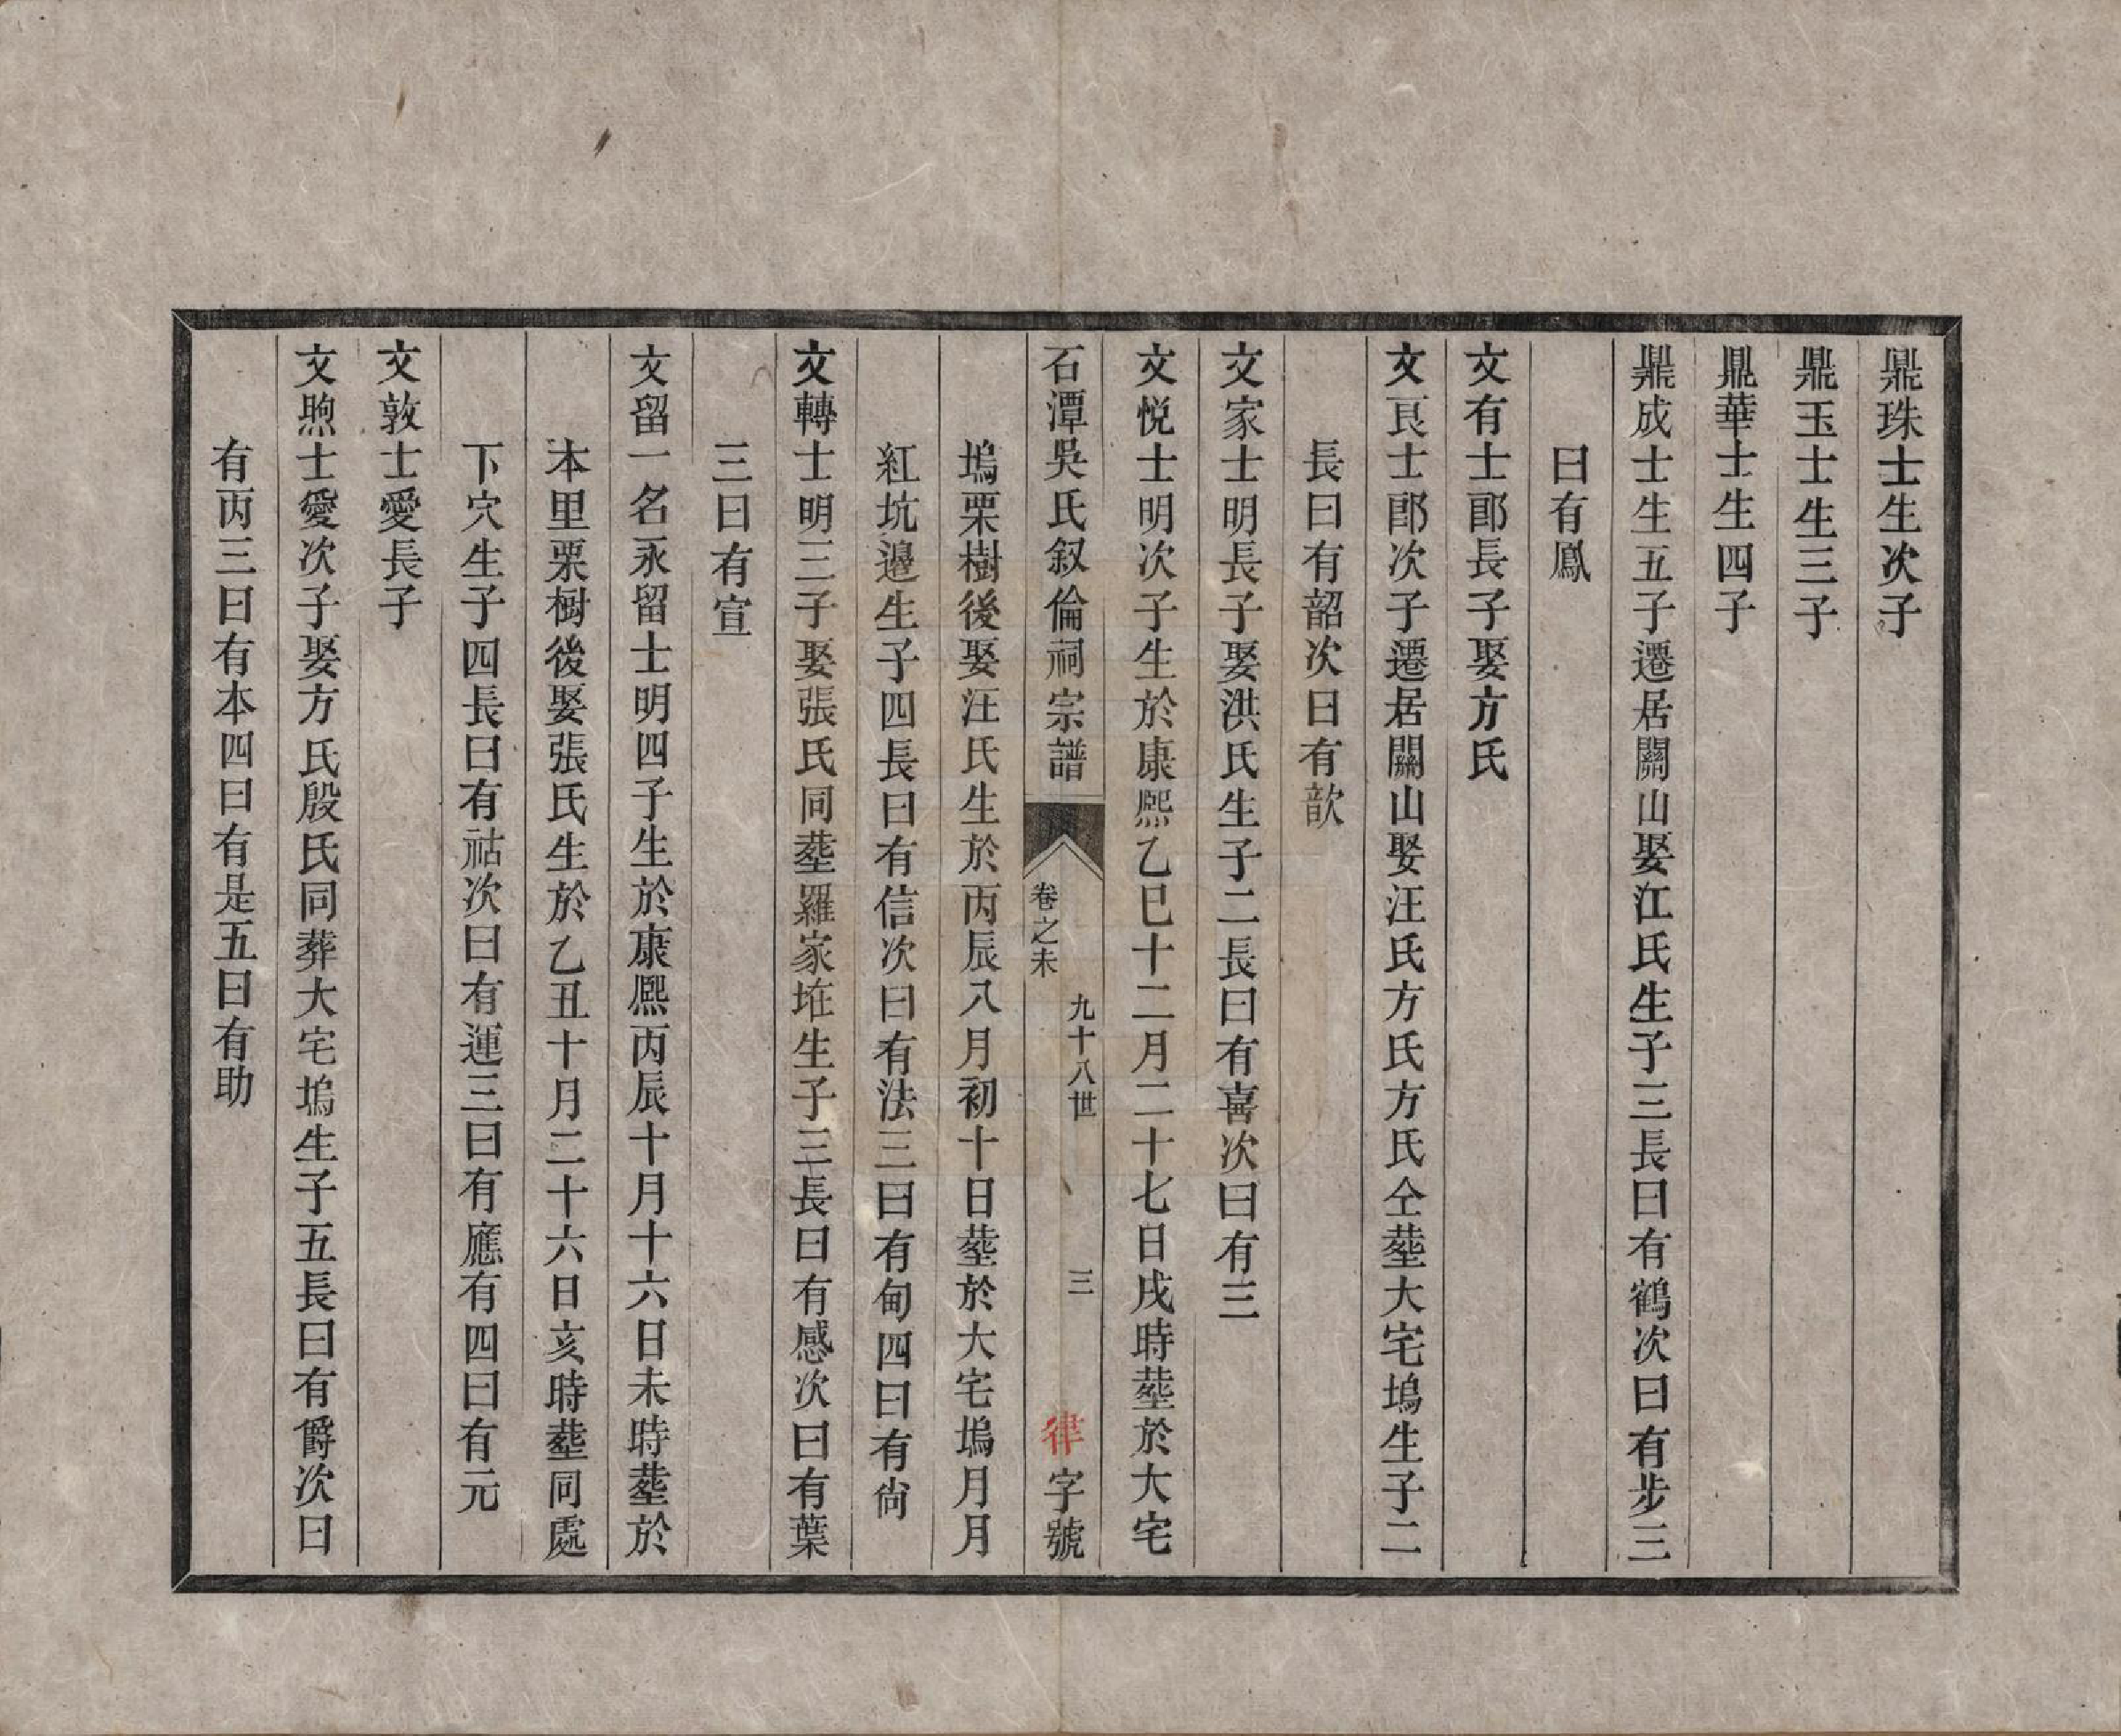 鼎珠士生次子
鼎玉士生三子
鼎華士生四子
鼎成士生五子遷居關山娶江氏生子三長曰有鶴次曰有步三
曰有鳳
文有士郎長子娶方氏
文良士郎次子遷居關山娶汪氏方氏方氏仝塟大宅塢生子二
長曰有韶次曰有歆
文家士明長子娶洪氏生子二長曰有喜次曰有三
文悅士明次子生於康熙乙巳十二月二十七日戌時塟於大宅
石潭吳氏叙倫祠宗譜
卷之未
九十八世
三
律字號
塢栗樹後娶汪氏生於丙辰八月初十日塟於大宅塢月月
紅坑邊生子四長曰有信次曰有法三曰有甸四曰有尙
文轉士明三子娶張氏同塟羅家坵生子三長曰有感次曰有葉
三曰有宣
文留一名永留士明四子生於康熙丙辰十月十六日未時塟於
本里栗樹後娶張氏生於乙丑十月二十六日亥時塟同處
下穴生子四長曰有祜次曰有運三曰有應有四曰有元
文敦士愛長子
文煦士愛次子娶方氏殷氏同葬大宅塢生子五長曰有爵次曰
有丙三曰有本四曰有是五曰有助